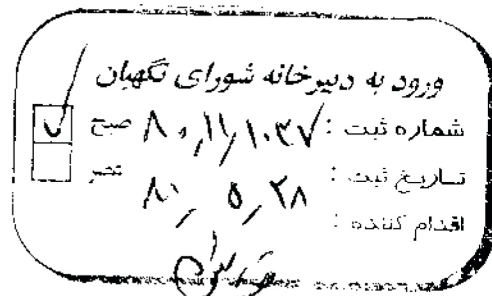 ورود به دبیرخانه شورای نگهبان
شماره ثبت : ۸۰٫۱۱٫۱۰۳۷ صبح
تاریخ ثبت : ۸۰٫۵٫۲۸ عصر
اقدام کننده :